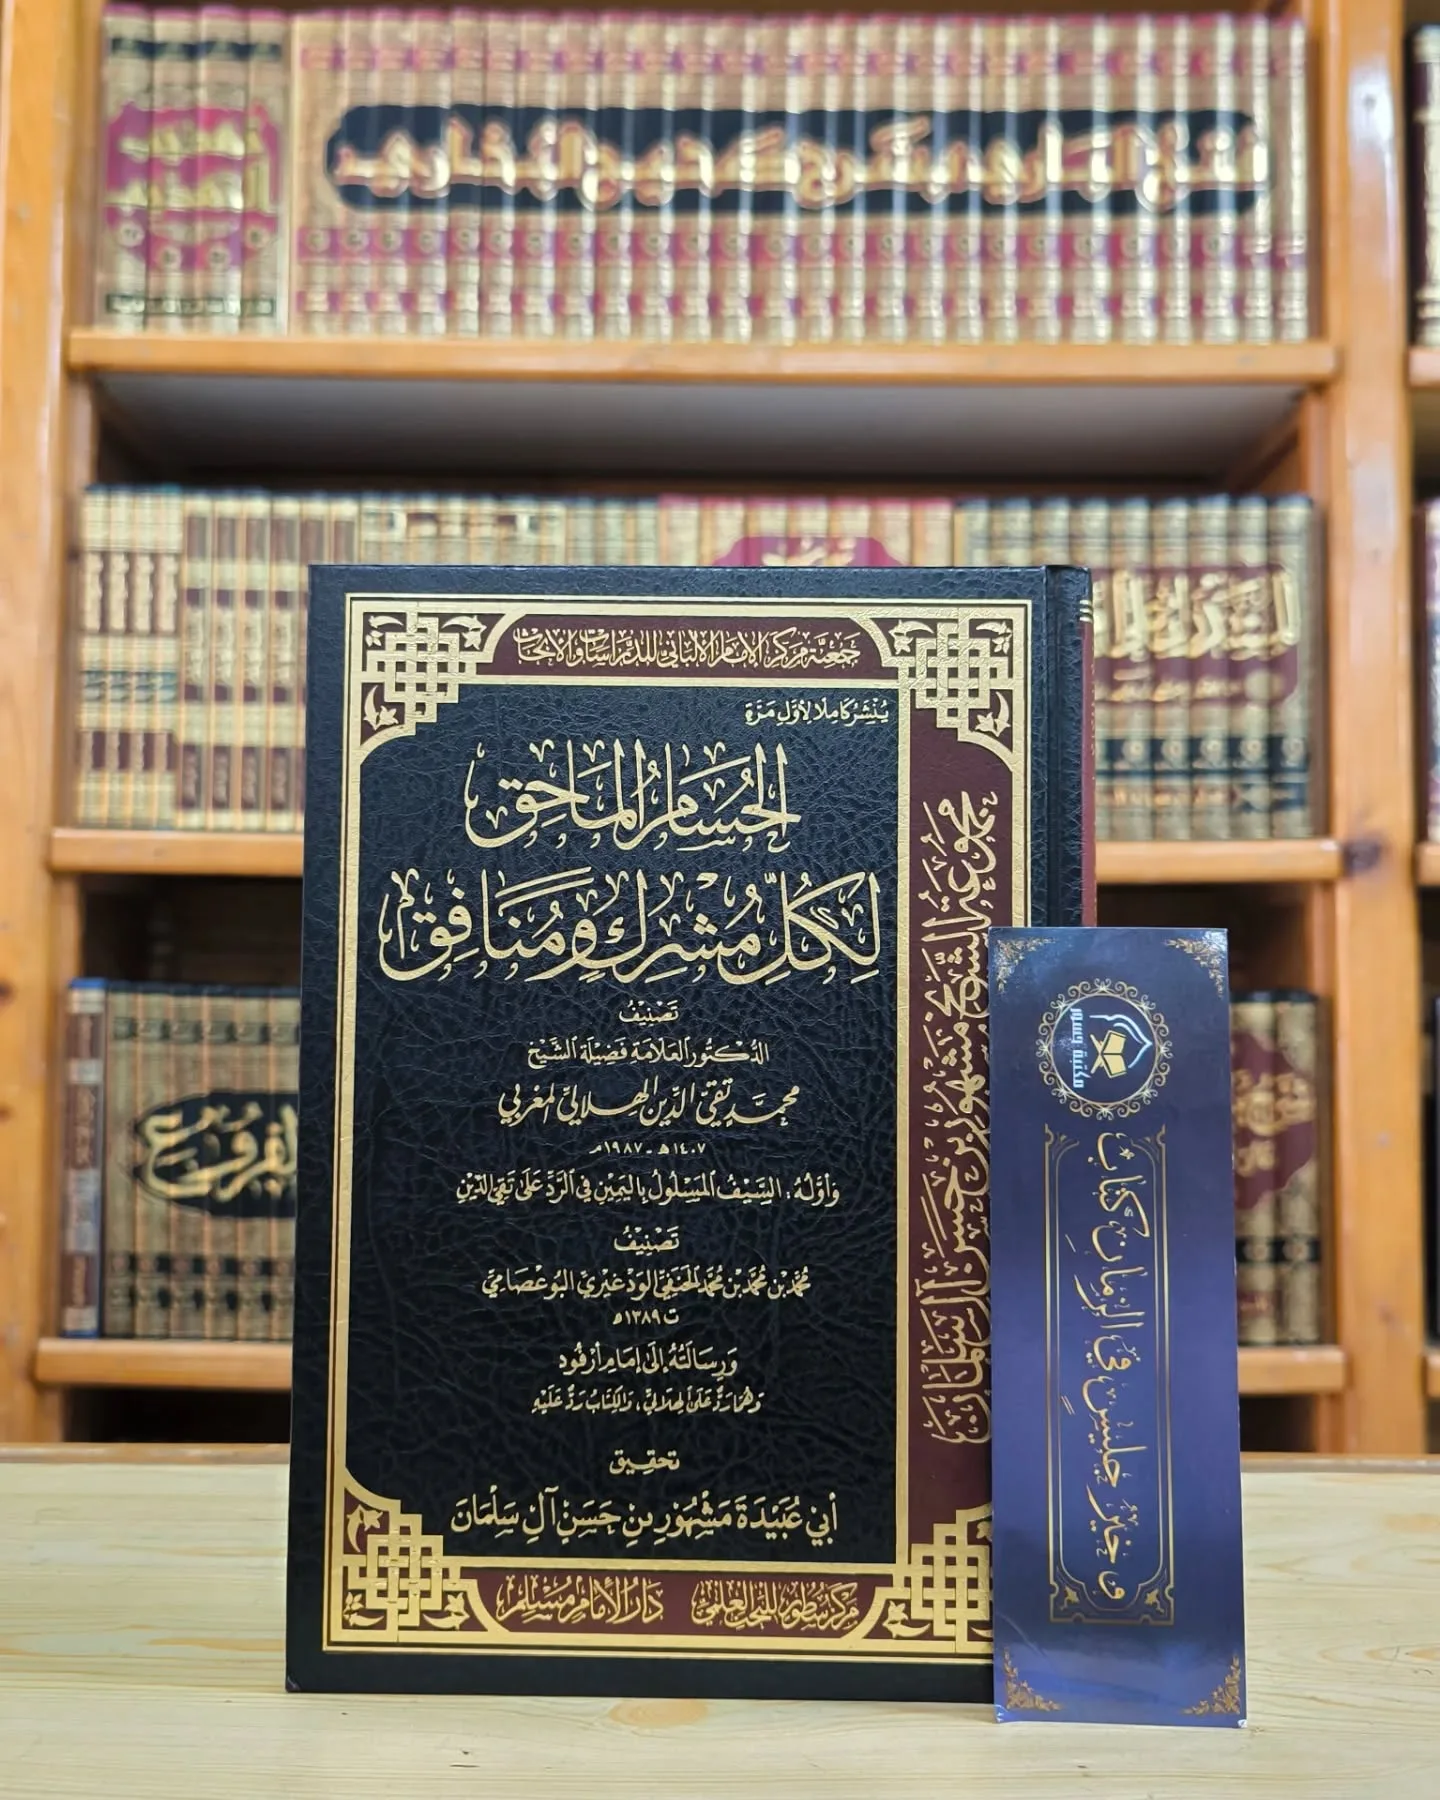 تهذيب
التهذيب
فتح الباري بشرح صحيح البخاري
جمعية مركز الإمام الألباني للدراسات والأبحاث
يُنْشَرُ كَامِلًا لِأَوَّلِ مَرَّةٍ
الحُسَامُ المَاحِقُ
لِكُلِّ مُشْرِكٍ وَمُنَافِقٍ
تَصْنِيْفُ
الدُّكتُورِ العَلَّامَةِ فَضِيْلَةِ الشَّيْخِ
محمد تقي الدين الهلالي المغربي
١٤٠٧ هـ - ١٩٨٧ م
وَأَوَّلُهُ: السَّيْفُ المَسْلُولُ بِاليَمِيْنِ فِي الرَّدِّ عَلَى تَقِيِّ الدِّيْنِ
تَصْنِيْفُ
مُحَمَّد بْن مُحَمَّد بْن مُحَمَّد الحَنَفِيّ الوَدْغِيْرِيّ البُوعِصَامِيّ
ت ١٣٨٩ هـ
وَرِسَالَتُهُ إِلَى إِمَامِ أَرْفُود
وَهُمَا رَدٌّ عَلَى الهِلَالِيِّ، وَالكِتَابُ رَدٌّ عَلَيْهِ
تحقيق
أَبِي عُبَيْدَةَ مَشْهُورِ بنِ حَسَنٍ آلِ سَلْمَانَ
مركز سطور للبحث العلمي
دار الإمام مسلم
مجموعة الشيخ مشهور بن حسن آل سلمان
وخير جليسٍ في الزمانِ كتابُ
الفروع